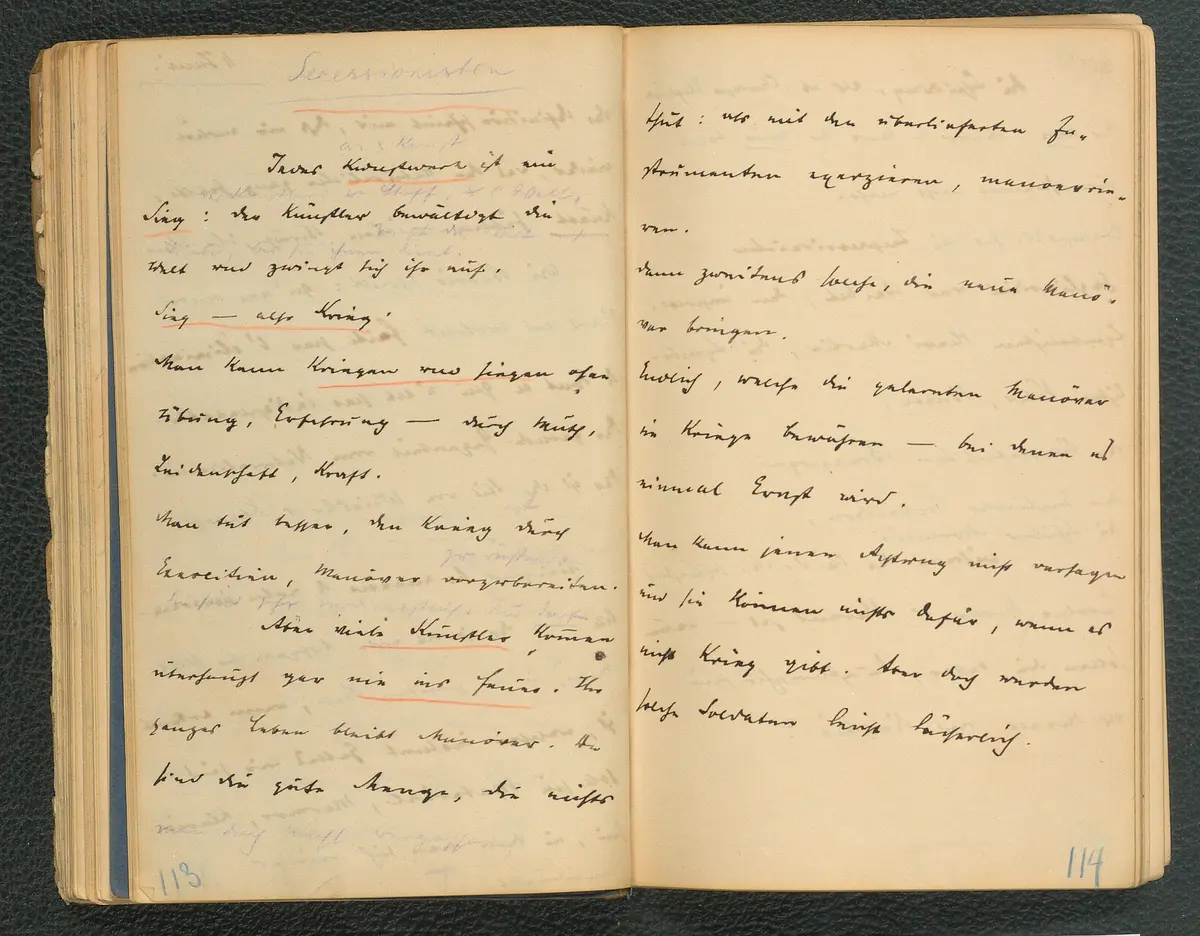 Secessionisten
Jedes Kunstwerk ist ein
Sieg: der Künstler bewältigt die
Welt und zwingt sich ihr auf.
Sieg — also Krieg.
Man kann Kriegen und siegen ohne
Übung, Erfahrung — durch Muth,
Leidenschaft, Kraft.
Man tut besser, den Krieg durch
Exercitien, Manöver vorzubereiten.
Aber viele Künstler kommen
überhaupt gar nie ins Feuer. Ihr
ganzes Leben bleibt Manöver. Da
sind die gute Menge, die nichts
113
thut: als mit den überlieferten In-
strumenten exerzieren, manoevrie-
ren.
dann zweitens solche, die neue Manö-
ver bringen.
Endlich, welche die gelernten Manöver
im Kriege bewähren — bei denen es
einmal Ernst wird.
Man kann jenen Achtung nicht versagen
und sie können nichts dafür, wenn es
nicht Krieg gibt. Aber doch werden
solche Soldaten leicht lächerlich.
114